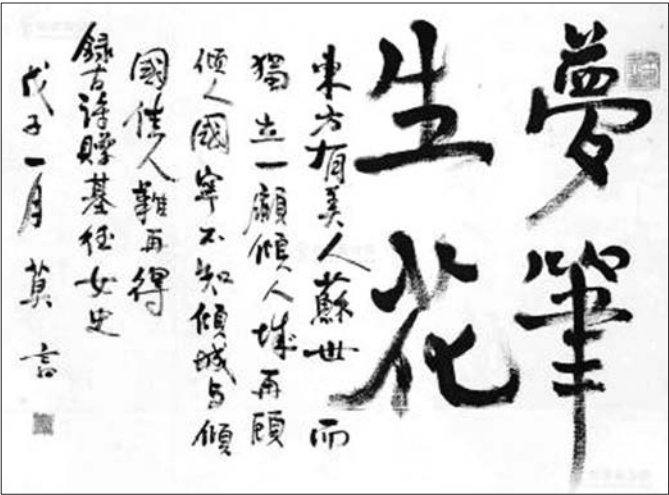 夢筆
生花
東方有美人蘇世而
獨立一顧傾人城再顧
傾人國寧不知傾城与傾
國佳人難再得
録古詩贈基任女史
戊子一月 莫言